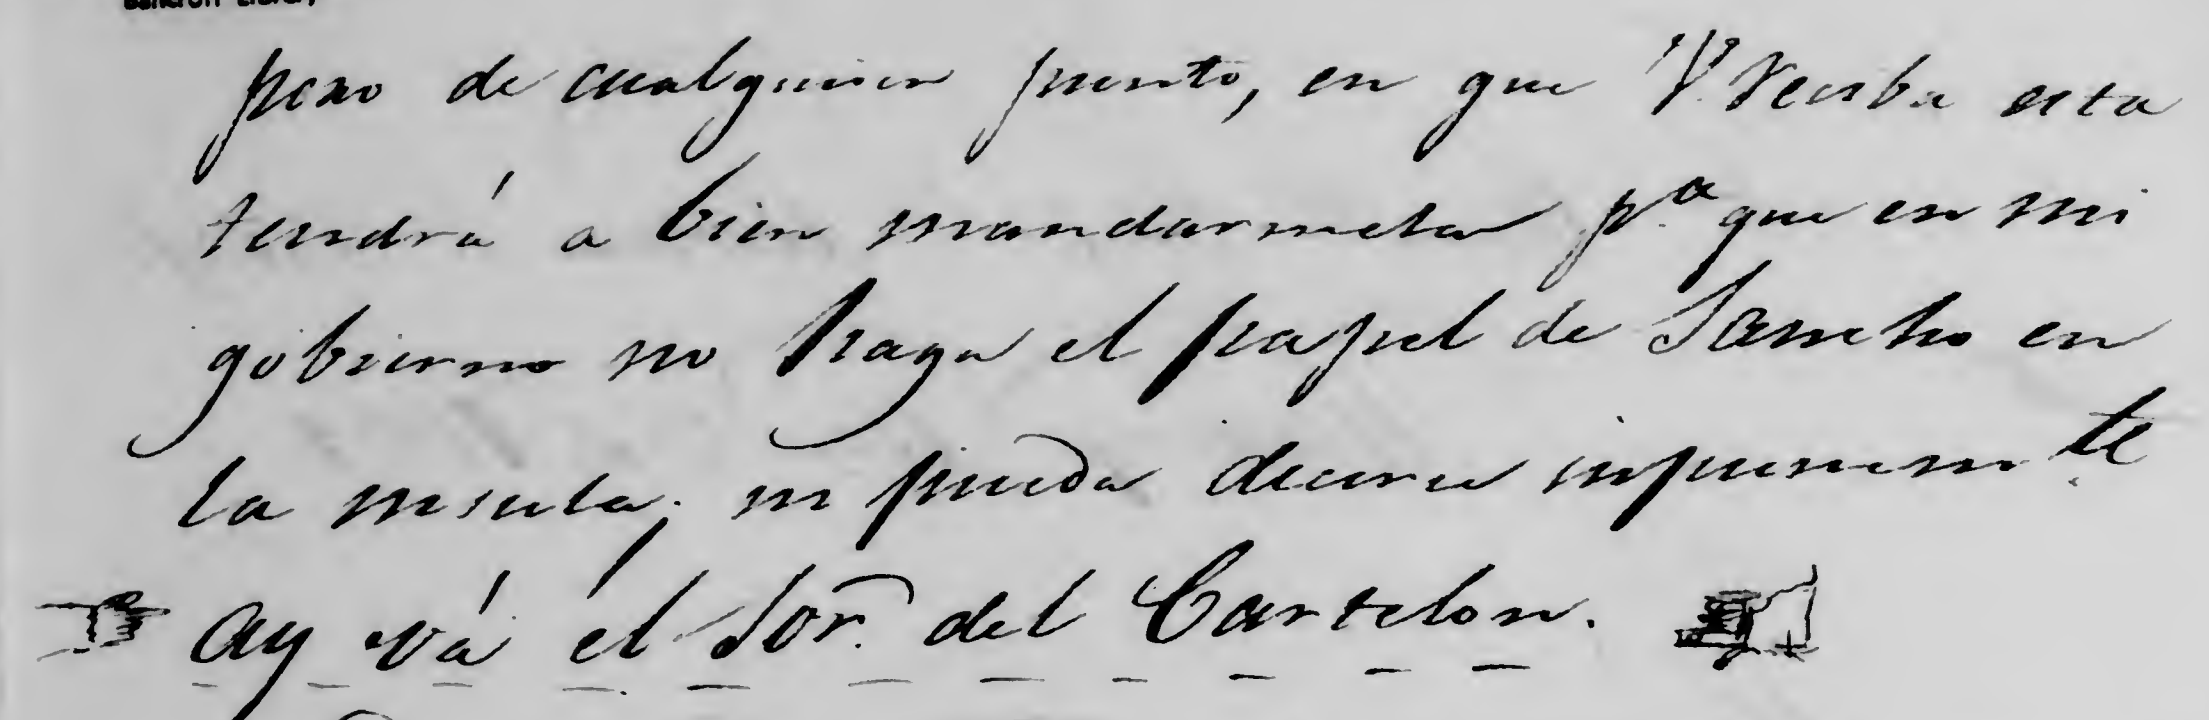 Bancroft Library
pero de cualquier punto, en que V. reciba esta
tendrá a bien mandarmela p.ª que en mi
gobierno no haga el papel de Sancho en
la insula; ni pueda decirse inpunem te
ay vá él Sor. del Cartelon.